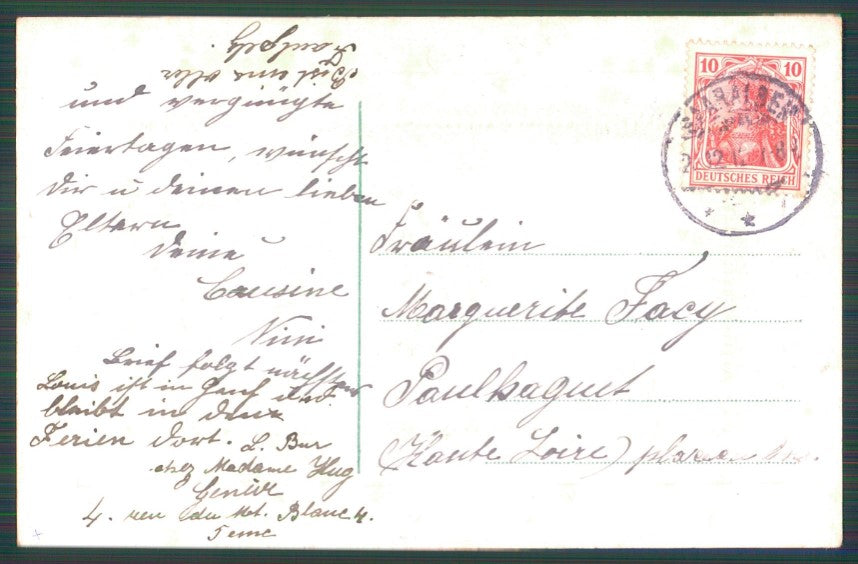 und vergnügte
Feiertagen, wünscht
dir u deinen lieben
Eltern
deine
Cousine
Nini
Brief folgt nächstens
Louis ist in Genf und
bleibt in den
Ferien dort. L. Bur
chez Madame Hug
Genève
4. rue du Mt. Blanc 4.
5eme
10 10
DEUTSCHES REICH
SAARALBEN
Fräulein
Marguerite Facy
Paulhaguet
(Haute Loire)